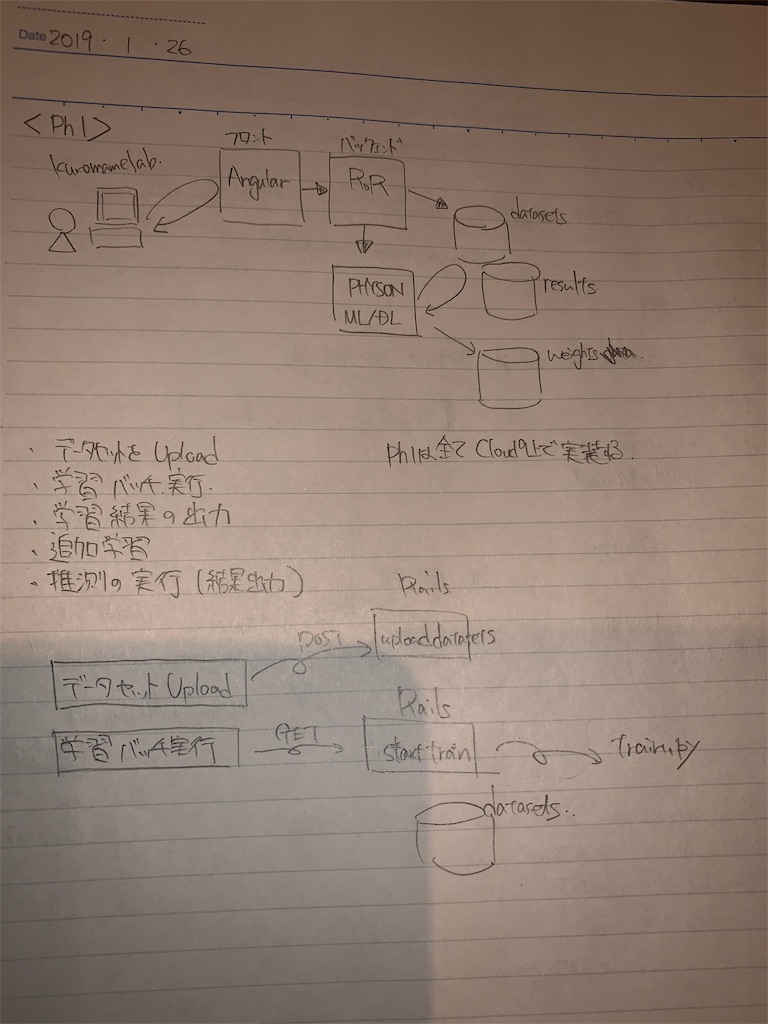 Date 2019 . 1 . 26
<Ph1>
フロント
バックエンド
kuromamelab.
Angular
RoR
datasets
PHYSON
ML/DL
results
weights
・データセットを Upload
Ph1は全て Cloud9上で実装する.
・学習 バッチ実行.
・学習結果の出力
・追加学習
・推測の実行 (結果出力)
Rails
POST
upload.datasets
データセット Upload
Rails
学習バッチ実行
GET
start train
train.py
datasets..